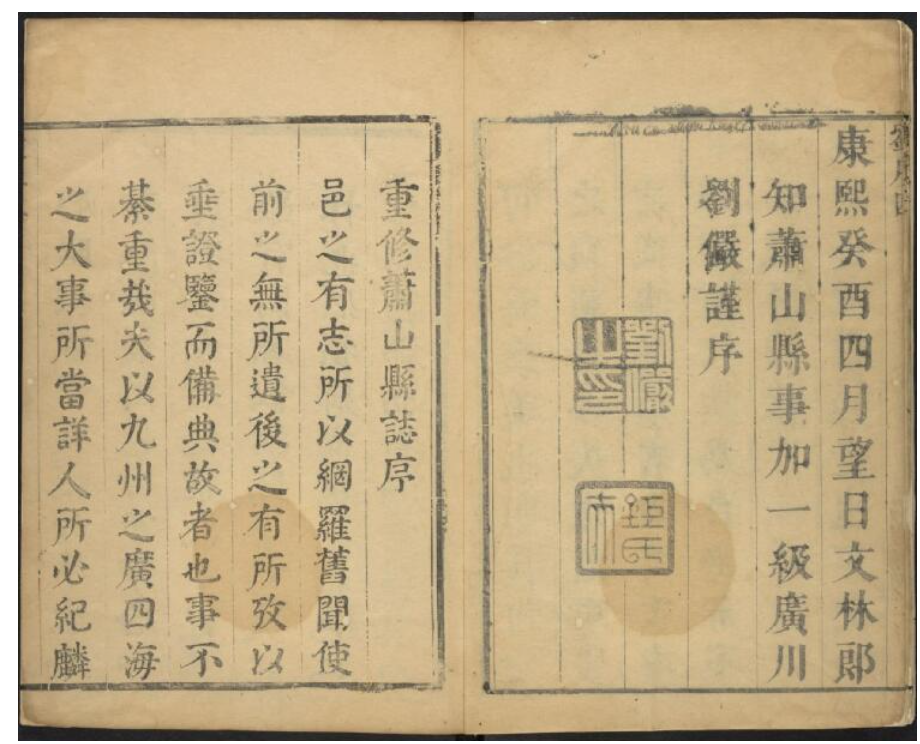 康熙癸酉四月望日文林郎
知蕭山縣事加一級廣川
劉儼謹序
劉儼
之印
重修蕭山縣誌序
邑之有志所以網羅舊聞使
前之無所遺後之有所攷以
垂證鑒而備典故者也事不
綦重哉夫以九州之廣四海
之大事所當詳人所必紀麟